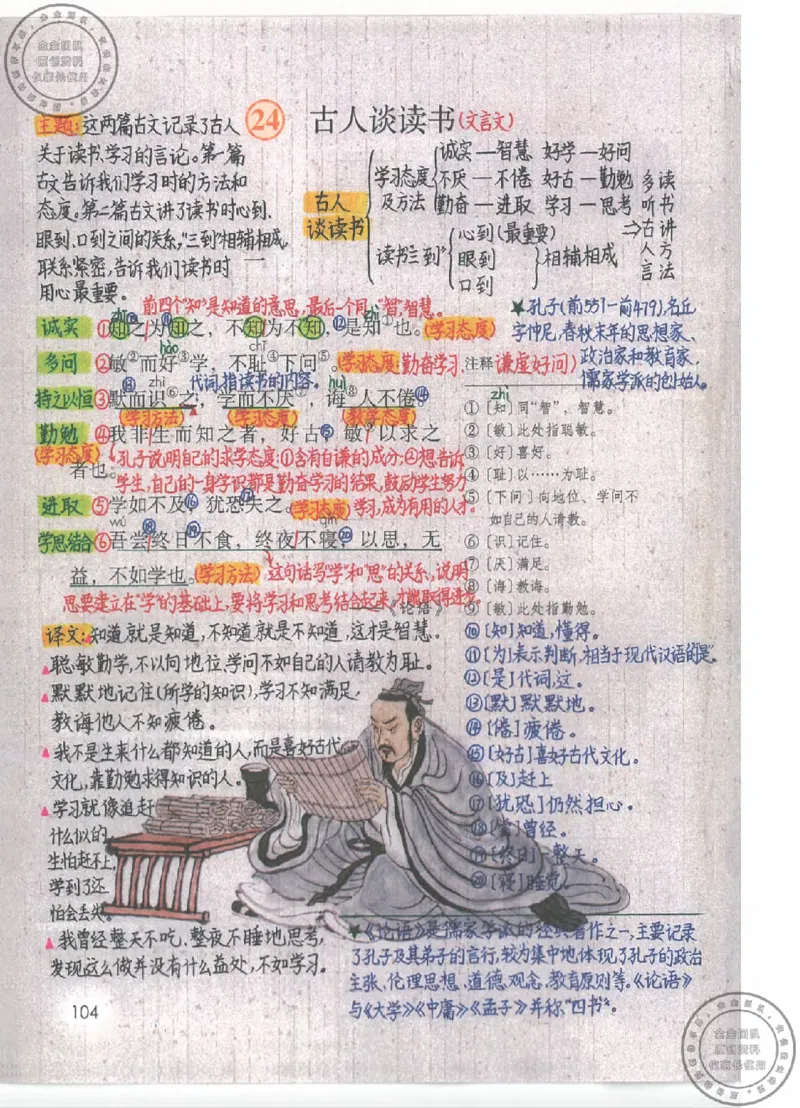 24 古人谈读书(文言文)
主题:这两篇古文记录了古人
关于读书、学习的言论。第一篇
古文告诉我们学习时的方法和
态度。第二篇古文讲了读书时心到、
眼到、口到之间的关系,"三到"相辅相成,
联系紧密,告诉我们读书时一
用心最重要。
古人
谈读书
学习态度
及方法
诚实—智慧 好学—好问
不厌—不倦 好古—勤勉
勤奋—进取 学习—思考
读书"三到"
心到(最重要)
眼到
口到
相辅相成
⇒古人言
多听讲方法
读书
前四个"知"是知道的意思,最后一个同"智",智慧。
zhī zhì
诚实 ①知之为知之,不知为不知,⑫是知①也。(学习态度)
hào chǐ
多问 ②敏②而好③学,不耻④下问⑤。(学习态度:勤奋学习、谦虚好问)
⑬ zhì 代词,指读书的内容。 huì
持之以恒 ③默而识⑥之,学而不厌⑦,诲⑧人不倦。⑭
(学习方法) (学习态度) (教学态度)
勤勉 ④我非生而知之者,好古⑮,敏⑨以求之
(学习态度) 者也。
孔子说明自己的求学态度:①含有自谦的成分;②想告诉
学生,自己的一身学识都是勤奋学习的结果,鼓励学生努力
学习,成为有用的人才。
进取 ⑤学如不及⑯,犹恐⑰失之。(学习态度)
wú ⑱ ⑲ qǐn
学思结合 ⑥吾尝终日不食,终夜不寝⑳,以思,无
益,不如学也。(学习方法)
这句话写"学"和"思"的关系,说明
思要建立在"学"的基础上,要将学习和思考结合起来,才能取得进步。
——《论语》
★孔子(前551—前479),名丘
字仲尼,春秋末年的思想家、
政治家和教育家,
儒家学派的创始人。
注释
zhì
①〔知〕同"智",智慧。
②〔敏〕此处指聪敏。
③〔好〕喜好。
④〔耻〕以……为耻。
⑤〔下问〕向地位、学问不
如自己的人请教。
⑥〔识〕记住。
⑦〔厌〕满足。
⑧〔诲〕教诲。
⑨〔敏〕此处指勤勉。
⑩〔知〕知道,懂得。
⑪〔为〕表示判断,相当于现代汉语的"是"。
⑫〔是〕代词,这。
⑬〔默〕默默地。
⑭〔倦〕疲倦。
⑮〔好古〕喜好古代文化。
⑯〔及〕赶上
⑰〔犹恐〕仍然担心。
⑱〔尝〕曾经。
⑲〔终日〕整天。
⑳〔寝〕睡觉。
译文:知道就是知道,不知道就是不知道,这才是智慧。
▲聪敏勤学,不以向地位、学问不如自己的人请教为耻。
▲默默地记住(所学的知识),学习不知满足,
教诲他人不知疲倦。
▲我不是生来什么都知道的人,而是喜好古代
文化,靠勤勉求得知识的人。
▲学习就像追赶
什么似的,
生怕赶不上,
学到了还
怕会丢失。
▲我曾经整天不吃、整夜不睡地思考,
发现这么做并没有什么益处,不如学习。
★《论语》是儒家学派的经典著作之一,主要记录
了孔子及其弟子的言行,较为集中地体现了孔子的政治
主张、伦理思想、道德观念、教育原则等。《论语》
与《大学》《中庸》《孟子》并称"四书"。
104